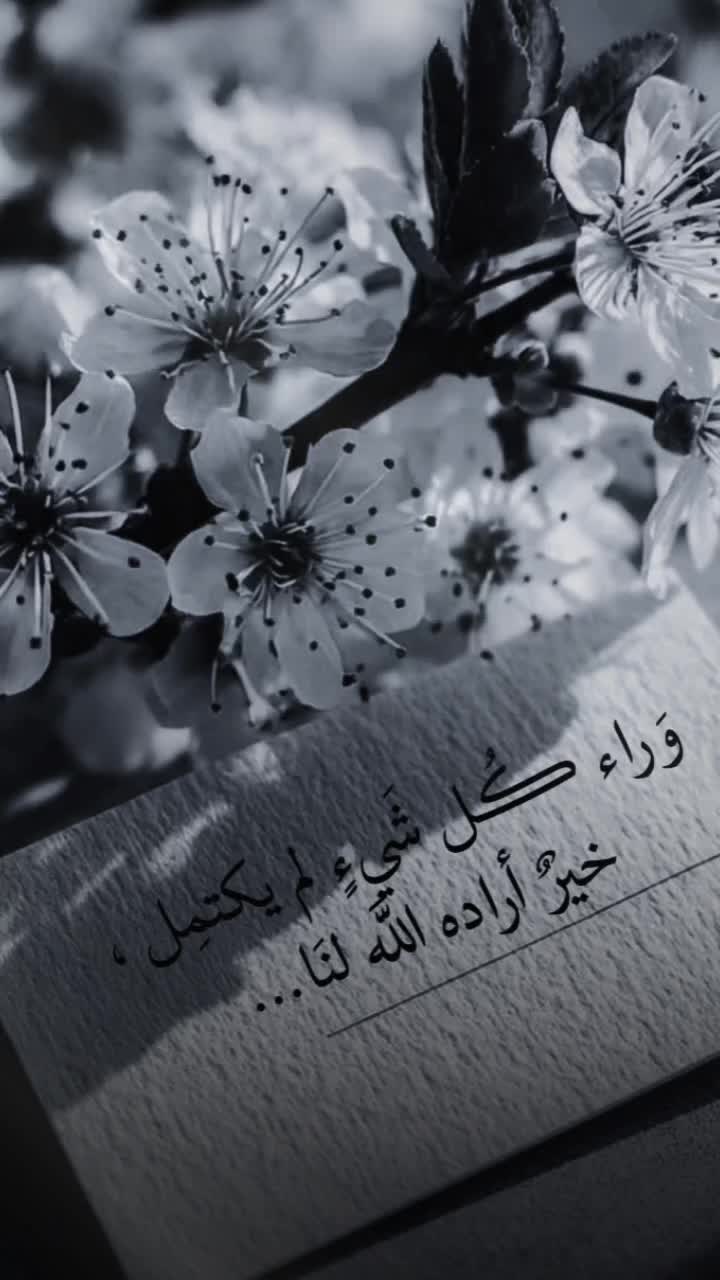 وَراء كُل شَيءٍ لم يكتمِل ،
خيرٌ أراده اللَّه لنَا...